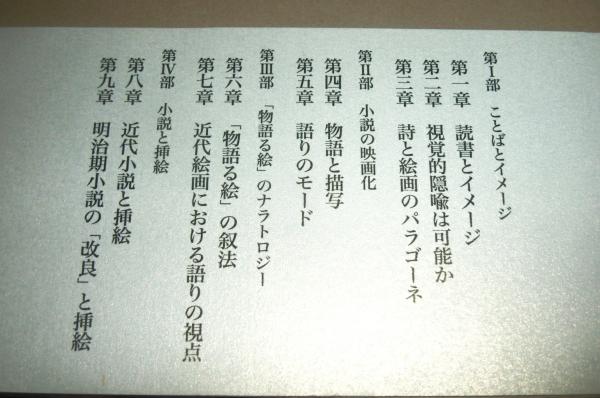 第Ⅰ部 ことばとイメージ
第一章 読書とイメージ
第二章 視覚的隠喩は可能か
第三章 詩と絵画のパラゴーネ
第Ⅱ部 小説の映画化
第四章 物語と描写
第五章 語りのモード
第Ⅲ部 「物語る絵」のナラトロジー
第六章 「物語る絵」の叙法
第七章 近代絵画における語りの視点
第Ⅳ部 小説と挿絵
第八章 近代小説と挿絵
第九章 明治期小説の「改良」と挿絵